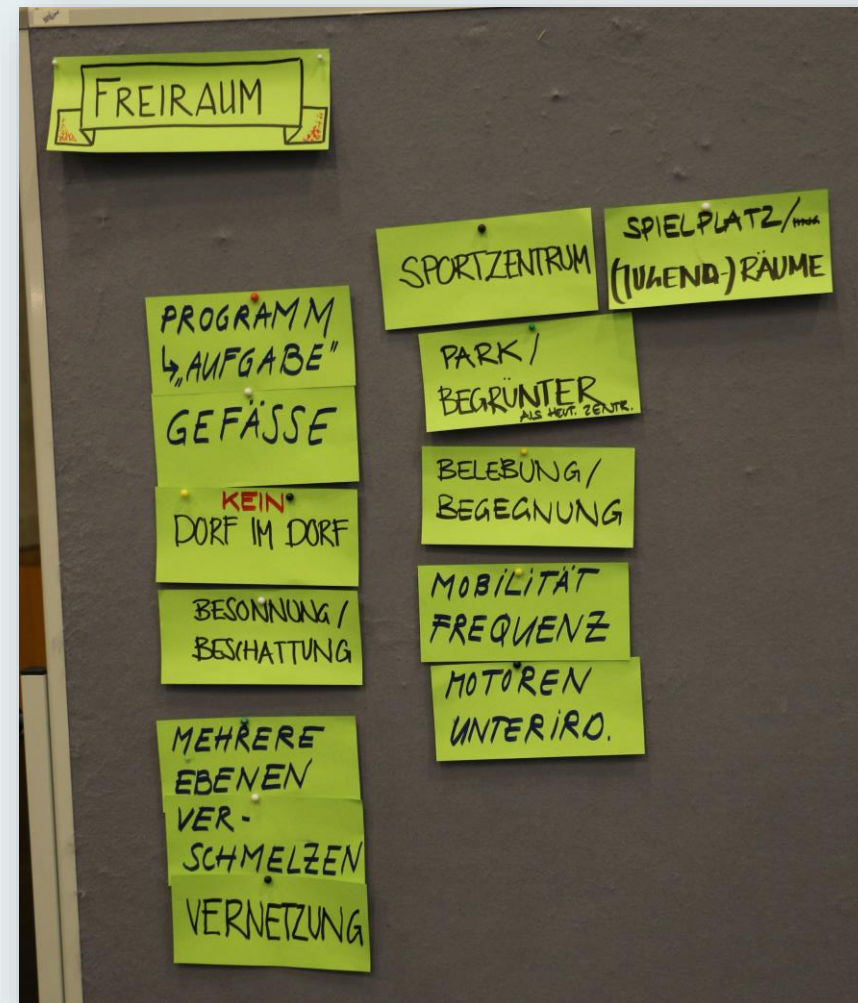 FREIRAUM
PROGRAMM
↳ „AUFGABE"
GEFÄSSE
KEIN
DORF IM DORF
BESONNUNG /
BESCHATTUNG
MEHRERE
EBENEN
VER-
SCHMELZEN
VERNETZUNG
SPORTZENTRUM
SPIELPLATZ/
(JUGEND-) RÄUME
PARK /
BEGRÜNTER
ALS HEUT. ZENTR.
BELEBUNG /
BEGEGNUNG
MOBILITÄT
FREQUENZ
MOTOREN
UNTERIRD.